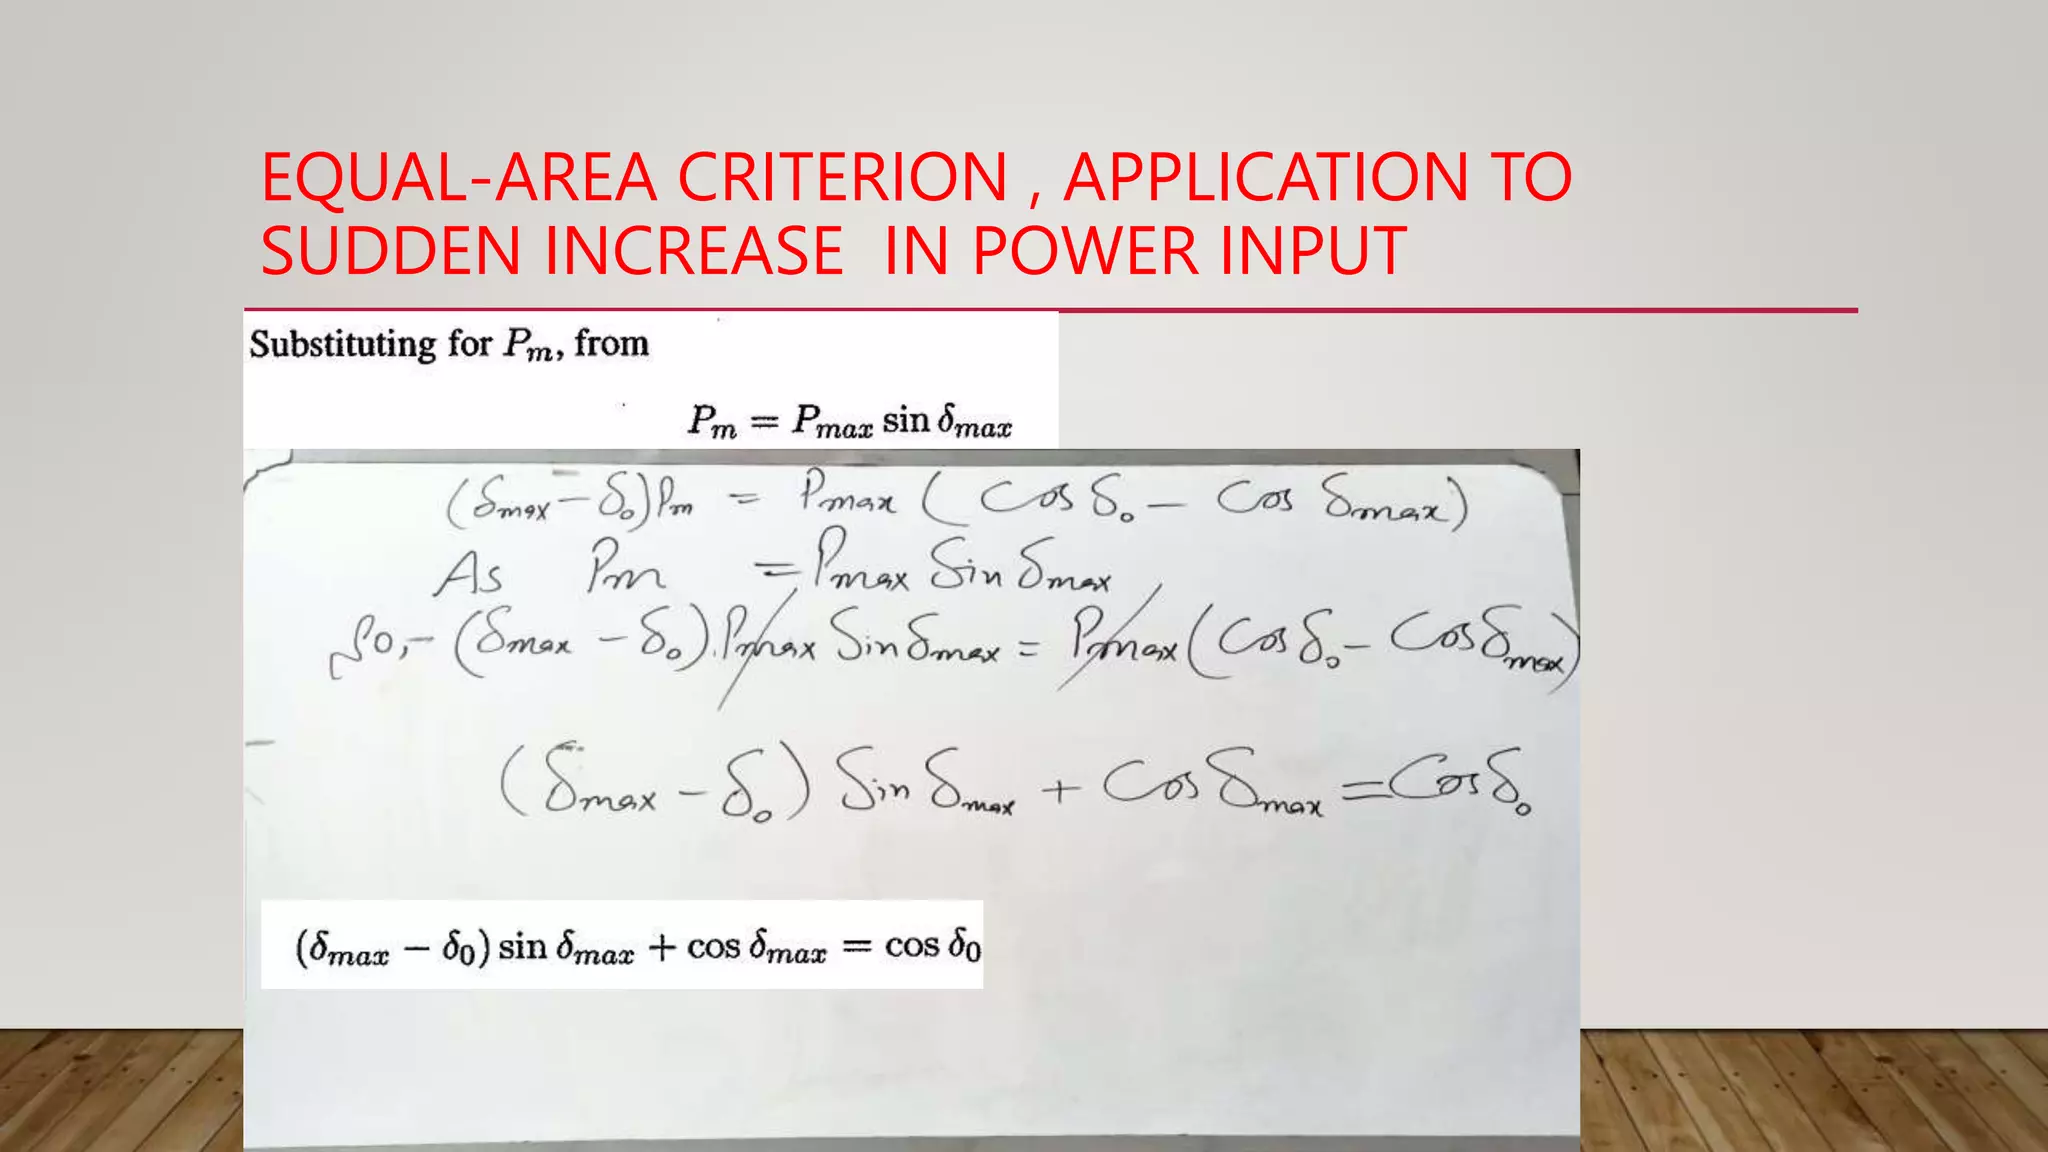 EQUAL-AREA CRITERION , APPLICATION TO
SUDDEN INCREASE IN POWER INPUT
Substituting for Pm, from
Pm = Pmax sin δmax
(δmax - δ0)Pm = Pmax (Cos δ0 - Cos δmax)
As Pm = Pmax Sin δmax
So,- (δmax - δ0).Pmax Sin δmax = Pmax (Cos δ0 - Cos δmax)
(δmax - δ0) Sin δmax + Cos δmax = Cos δ0
(δmax − δ0) sin δmax + cos δmax = cos δ0